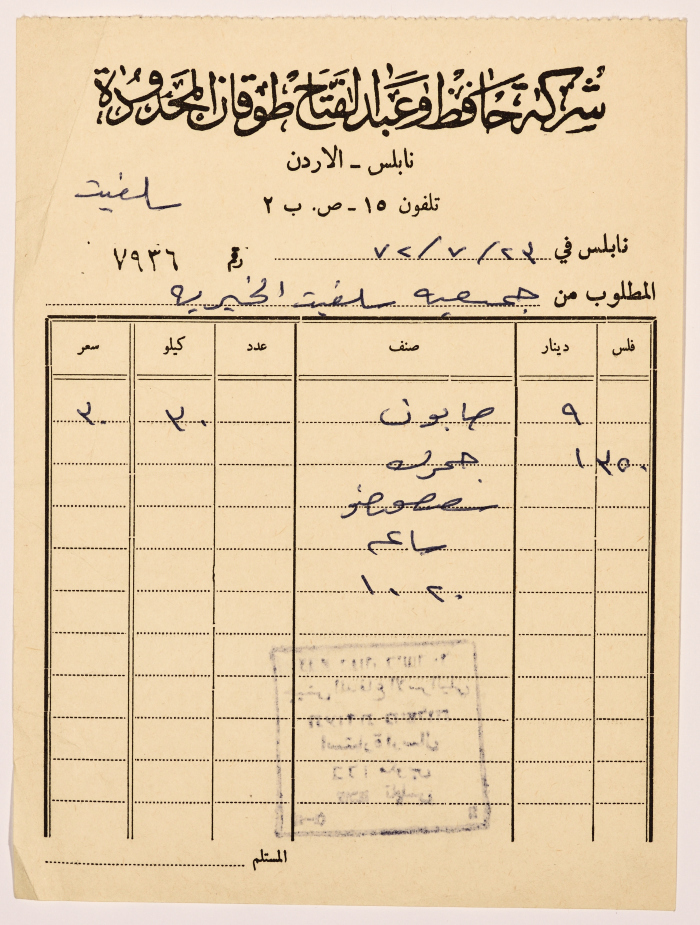 شركة حافظ وعبد الفتاح طوقان المحدودة
نابلس - الاردن
تلفون ١٥ - ص. ب ٢
سلفيت
نابلس في ٢٣/٧/٧٢ رقم ٧٩٣٦
المطلوب من جمعيه سلفيت الخيريه
فلس دينار صنف عدد كيلو سعر
٩ صابون ٣٠ ٣٠
٣٥٠ ١ جمرك
جيش الدفاع الاسرائيلي
المستلم